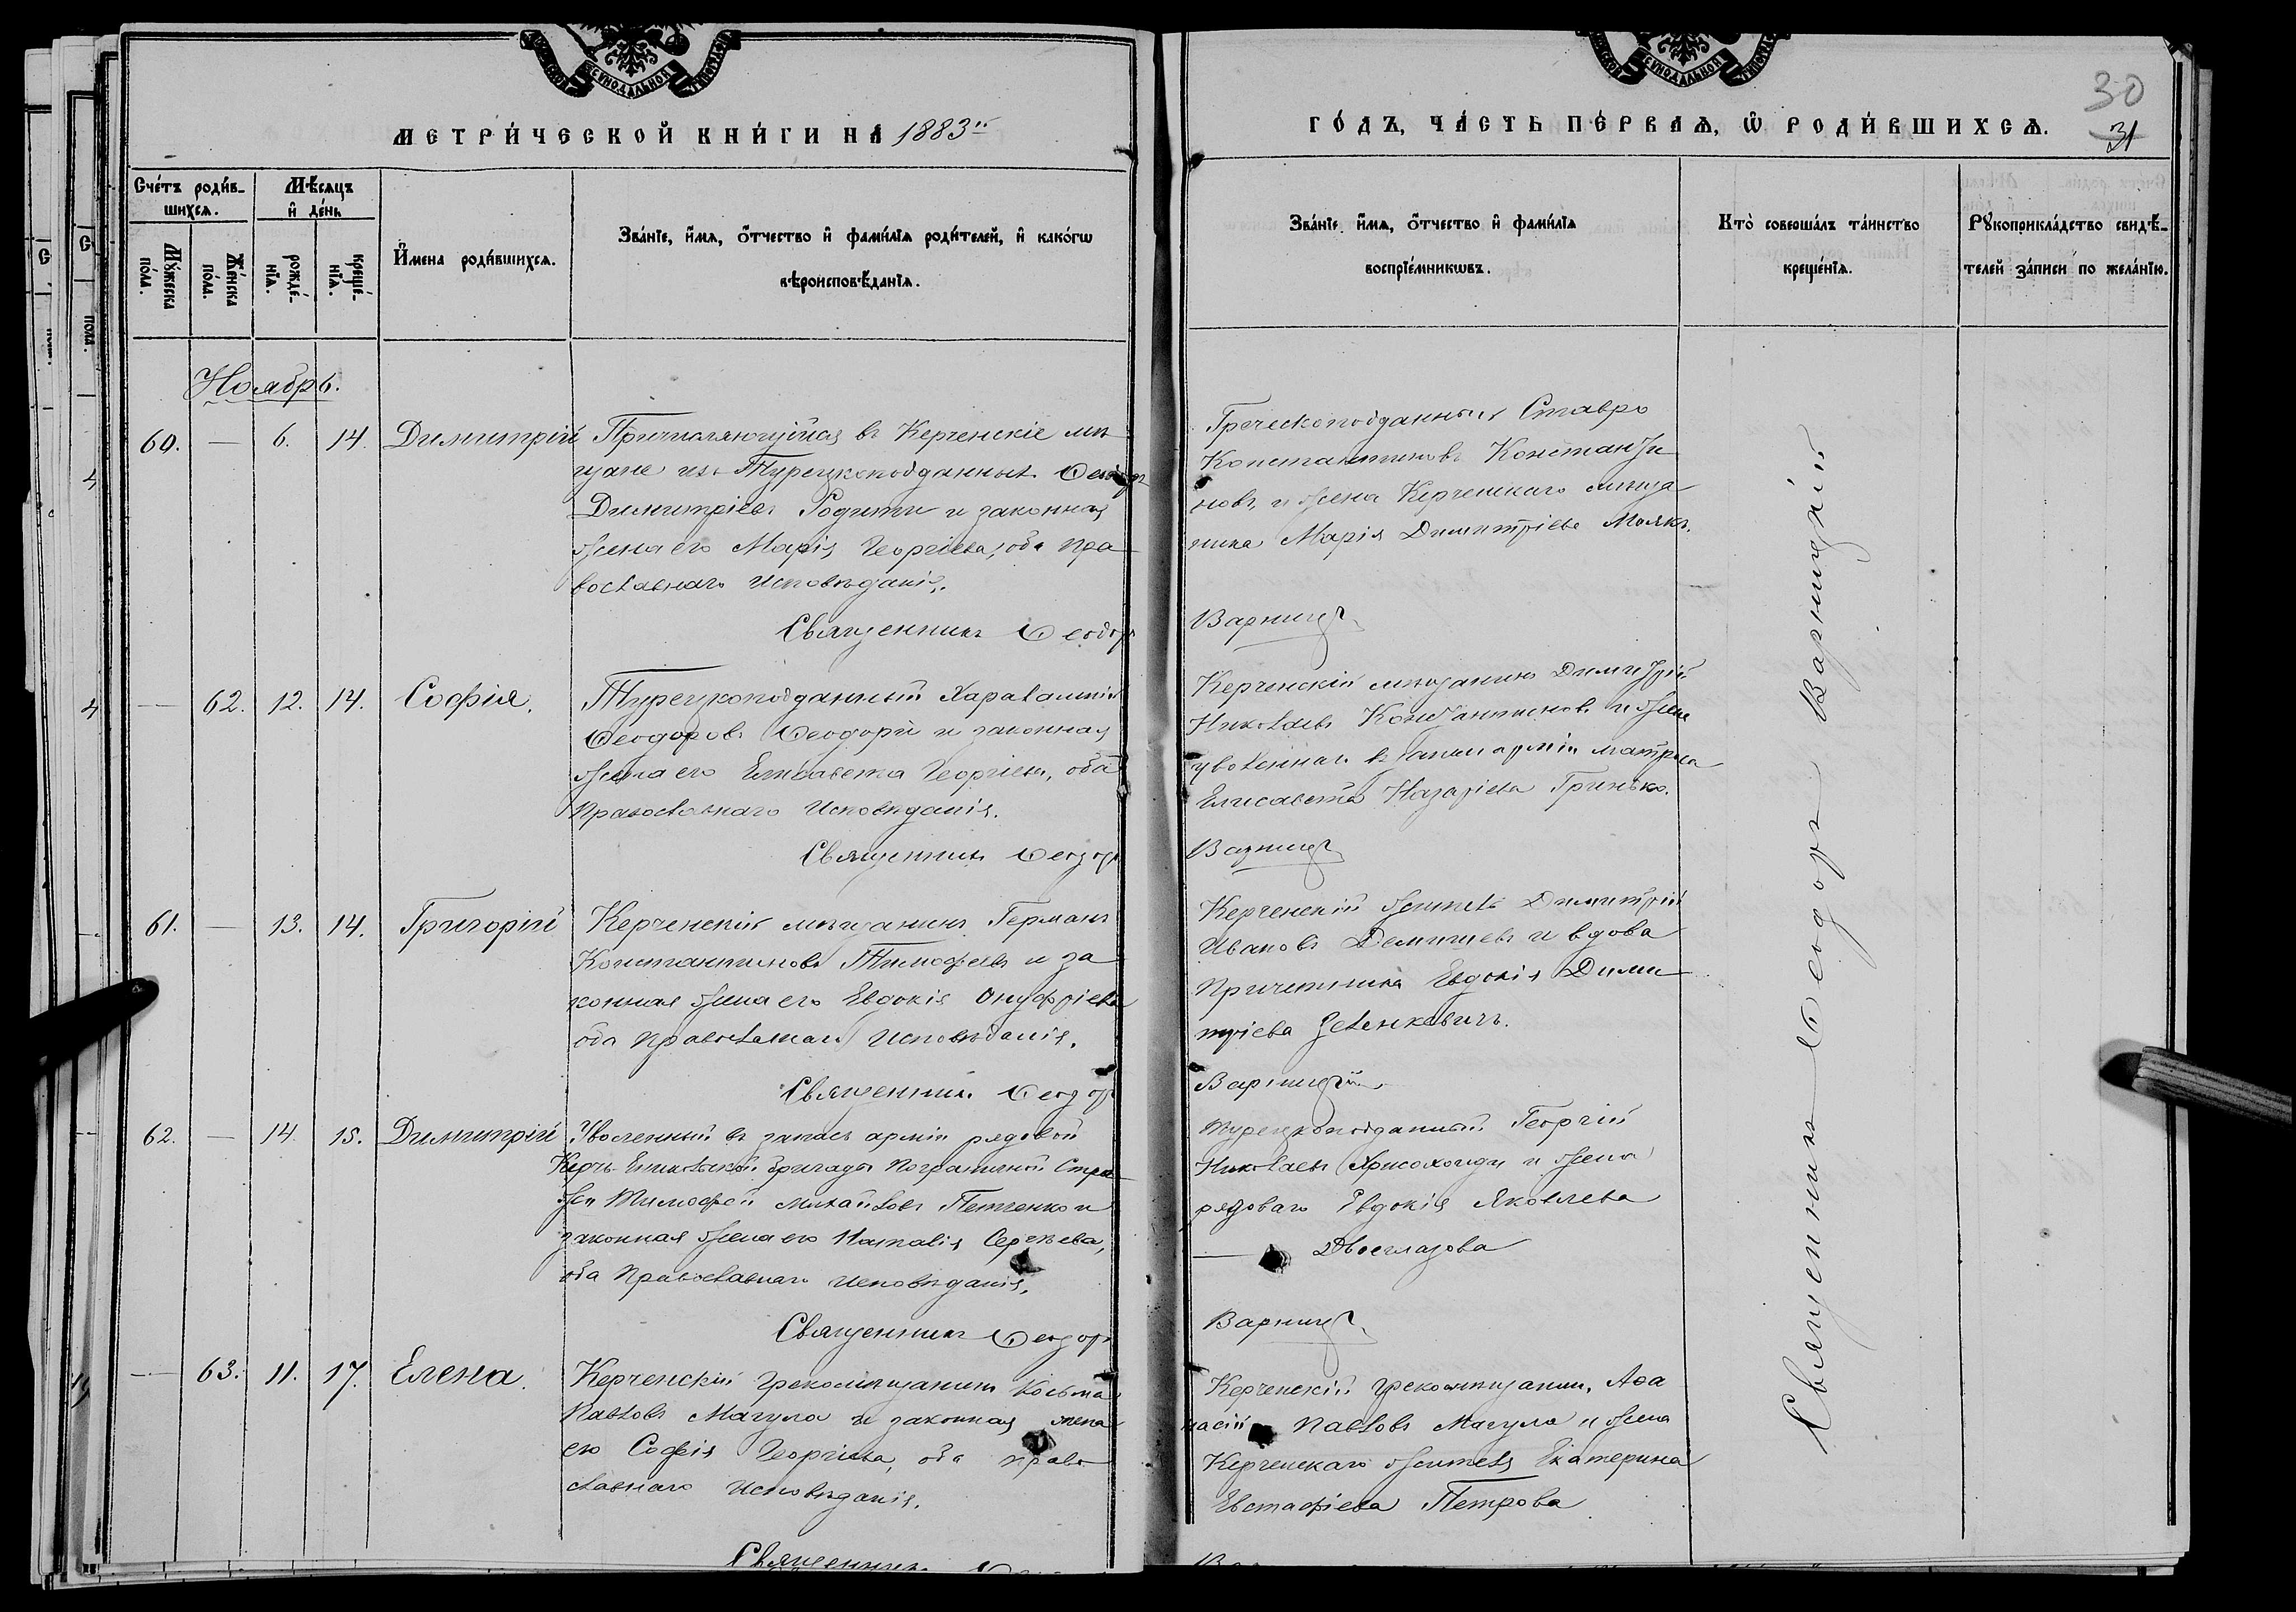 СѴНОДАЛЬНОЙ
СѴНОДАЛЬНОЙ
МЕТРИ́ЧЕСКОЙ КНИ́ГИ НА 1883й
ГО́ДЪ, ЧА́СТЬ ПЕ́РВАѦ, Ѽ РОДИ́ВШИХСѦ.
30
31
Счéтъ роди́в-
шихсѧ.
Мꙋ́жеска
по́ла.
Жéнска
по́ла.
Мѣ́сѧцъ
и҆ дéнь
рождé-
нїѧ.
крещé-
нїѧ.
И҆мена роди́вшихсѧ.
Звáнїе, и҆́мѧ, ѻ҆́тчество и҆ фами́лїѧ роди́телей, и҆ какóгѡ
вѣроисповѣ́данїѧ.
Звáнїе, и҆́мѧ, ѻ҆́тчество и҆ фами́лїѧ
воспрїéмникѡвъ.
Ктò совершáлъ тáинство
крещéнїѧ.
Рꙋкоприклáдство свидѣ́-
телей зáписи по желáнїю.
Ноябрь.
60. — 6. 14. Димитрій
Причисляющійся въ Керченскіе мѣ
щане изъ Турецкоподданныхъ Ѳеодоръ
Димитріевъ Родити и законная
жена его Марія Георгіева, оба пра
вославнаго исповѣданія.
Священникъ Ѳеодоръ
Греческоподданный Ставро
Константиновъ Константи
новъ и жена Керченскаго мѣща
нина Марія Димитріева
Варницк
— 62. 12. 14. Софія.
Турецкоподданный Харалампій
Ѳеодоровъ Ѳеодори и законная
жена его Елисавета Георгіева, оба
Православнаго Исповѣданія.
Священникъ Ѳеодоръ
Керченскій мѣщанинъ Димитрій
Николаевъ Константиновъ и жена
уволеннаго въ матроса
Елисавета Назарієва Гринько.
Варницк
61. — 13. 14. Григорій
Керченскій мѣщанинъ Германъ
Константиновъ Тимофеевъ и за
конная жена его Евдокія Онуфріева
оба Православнаго Исповѣданія.
Священникъ Ѳеодоръ
Керченскій житель Димитрій
Ивановъ Демишевъ и вдова
Причетника Евдокія Дими
тріева Зеленкевичъ.
Варницкій
62. — 14. 15. Димитрій
Уволенный въ запасъ арміи рядовой
Керчь Еникольской бригады Пограничной Стра
жи Тимофей Михайловъ Петченко и
законная жена его Наталія Сергѣева,
оба Православнаго исповѣданія.
Священникъ Ѳеодоръ
Турецкоподданный Георгій
Николаевъ и жена
рядоваго Евдокія Яковлева
— Двоеглазова
Варницк
— 63. 11. 17. Елена.
Керченскій грекомѣщанинъ Косьма
Павловъ Мачула и законная жена
его Софія Георгіева, оба право
славнаго Исповѣданія.
Священникъ
Керченскій грекомѣщанинъ Аѳа
насій Павловъ Мачула и жена
Керченскаго жителя Екатерина
Евстафіева Петрова
Священникъ Ѳеодоръ Варницкій